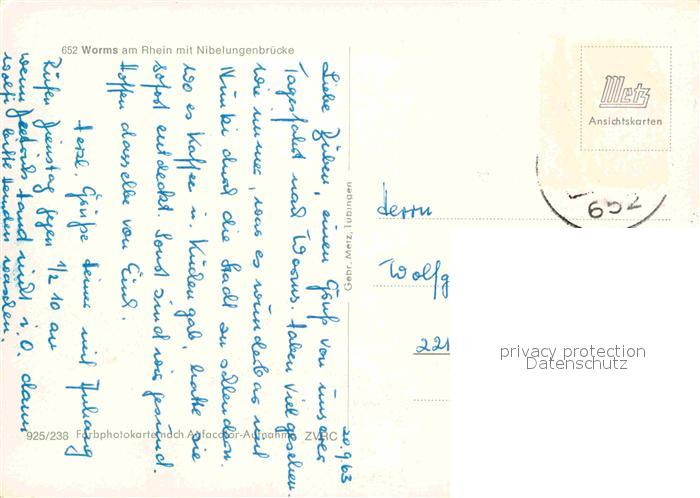 652 Worms am Rhein mit Nibelungenbrücke
20.9.63
Liebe Buben, einen Gruß von unserer
Tagesfahrt nach Worms. Haben viel gesehen.
Wie immer, war es wunderbar mit
durch die Stadt zu schlendern.
Wo es Kaffee u. Kuchen gab, hatte sie
sofort entdeckt. Sonst sind wir gesund.
Hoffen dasselbe von Euch.
Herzl. Grüße
Rufen Dienstag gegen 1/2 10 an
wenn nicht i.O. dann
bitte
Gebr. Metz, Tübingen
925/238 Farbphotokarte nach Agfacolor-Aufnahme ZVRC
Metz
Ansichtskarten
652
Herrn
Wolfg
221
privacy protection
Datenschutz